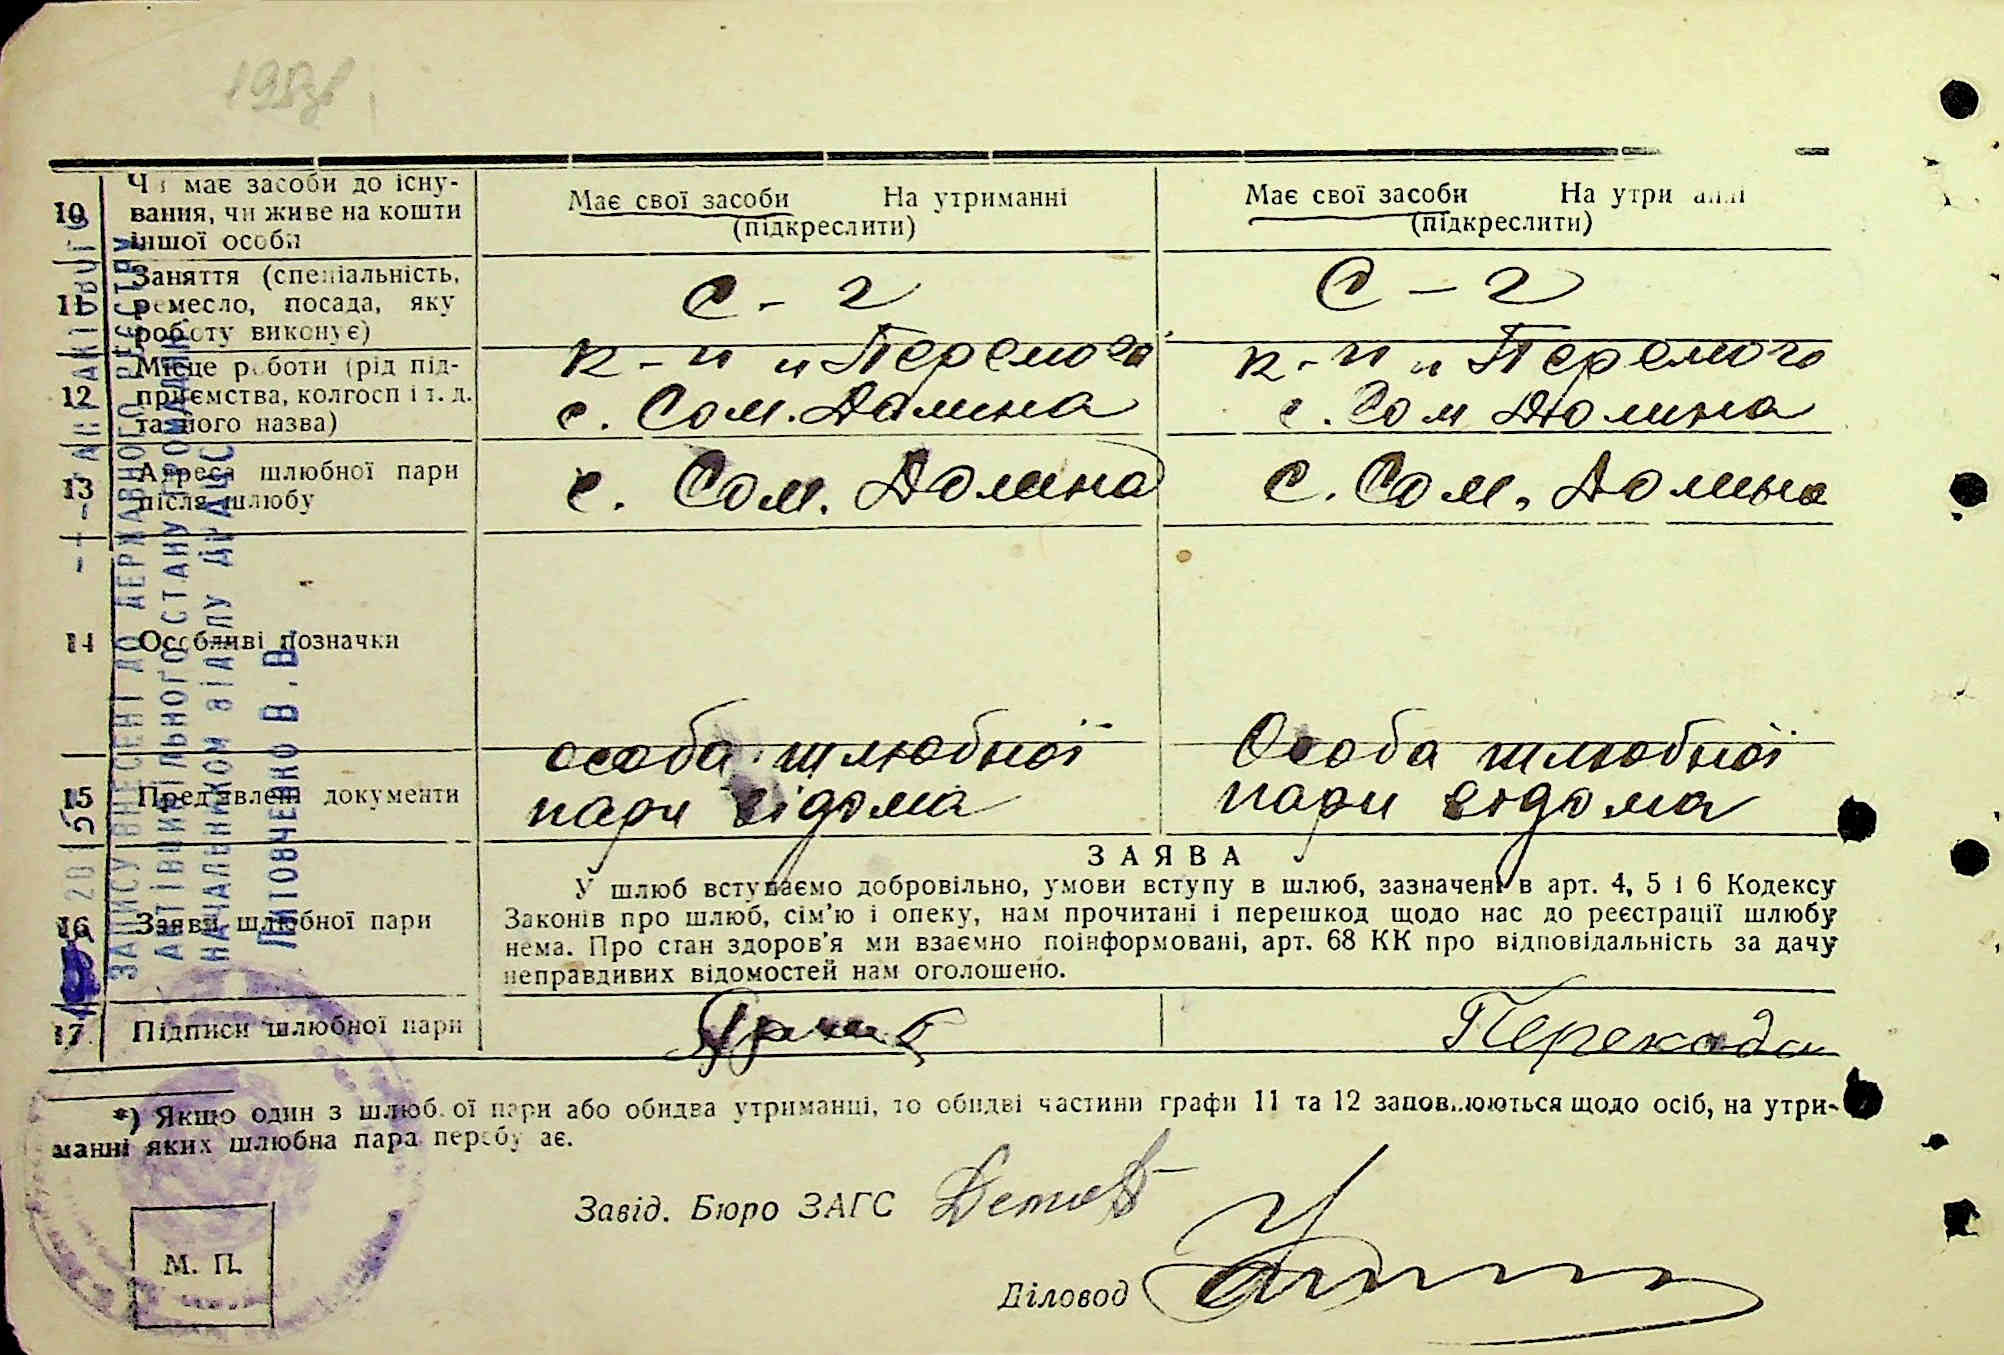 10 Чи має засоби до існу-
вання, чи живе на кошти
іншої особи
Має свої засоби На утриманні
(підкреслити)
Має свої засоби На утриманні
(підкреслити)
11 Заняття (спеціальність,
ремесло, посада, яку
роботу виконує)
с - г
с - г
12 Місце роботи (рід під-
приємства, колгосп і т. д.
та його назва)
к-п „Перемога
с. Сом. Долина
к-п „Перемога
с. Сом Долина
13 Адреса шлюбної пари
після шлюбу
с. Сом. Долина
с. Сом. Долина
14 Особливі позначки
15 Пред'явлені документи
особа шлюбної
пари відома
Особа шлюбної
пари відома
16 Заяви шлюбної пари
ЗАЯВА
У шлюб вступаємо добровільно, умови вступу в шлюб, зазначені в арт. 4, 5 і 6 Кодексу
Законів про шлюб, сім'ю і опеку, нам прочитані і перешкод щодо нас до реєстрації шлюбу
нема. Про стан здоров'я ми взаємно поінформовані, арт. 68 КК про відповідальність за дачу
неправдивих відомостей нам оголошено.
17 Підписи шлюбної пари
Перекода
*) Якщо один з шлюбної пари або обидва утриманці, то обидві частини графи 11 та 12 заповнюються щодо осіб, на утри-
манні яких шлюбна пара перебуває.
Завід. Бюро ЗАГС
Діловод
М. П.
ЗАПИСУ ВНЕСЕНІ ДО ДЕРЖАВНОГО РЕЄСТРУ
АКТІВ ЦИВІЛЬНОГО СТАНУ ГРОМАДЯН
НАЧАЛЬНИКОМ ВІДДІЛУ ДРАЦС
Литовченко В.В.